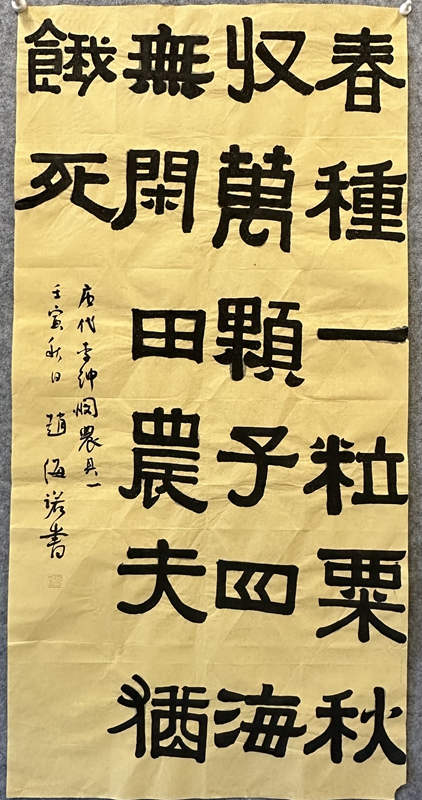 春種一粒粟秋
収萬顆子四海
無閑田農夫猶
餓死
唐代李紳憫農其一
壬寅秋日趙海諾書